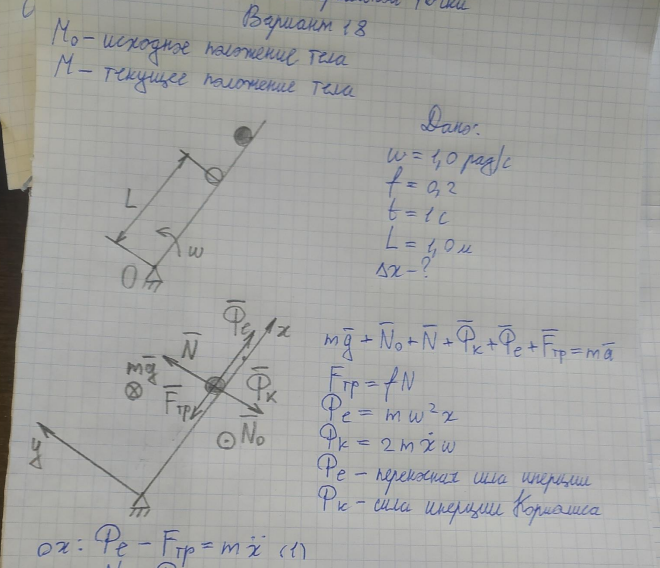 Вариант 18
M₀ – исходное положение тела
M – текущее положение тела
Дано:
ω = 1,0 рад/с
f = 0,2
t = 1 с
L = 1,0 м
Δx – ?
L
ω
O
Φ̄e
x
N̄
mḡ
F̄тр
Φ̄к
N̄₀
y
mḡ + N̄₀ + N̄ + Φ̄к + Φ̄e + F̄тр = mā
Fтр = fN
Φe = mω²x
Φк = 2mẋω
Φe – переносная сила инерции
Φк – сила инерции Кориолиса
ox: Φe – Fтр = mẍ (1)